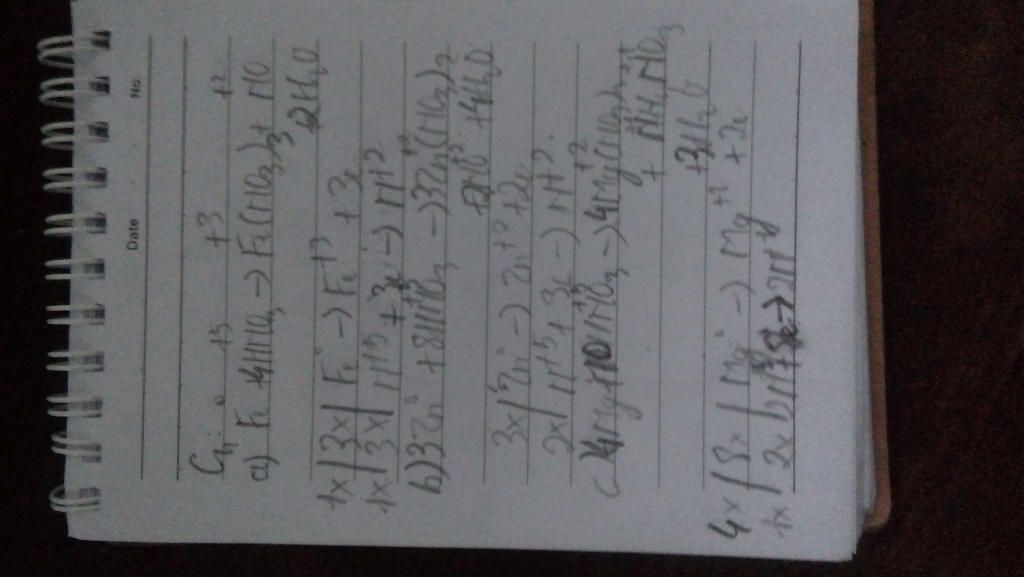 Date No
Giải
0 +5 +3 +2
a) Fe + 4HNO3 → Fe(NO3)3 + NO
+2H2O
1x | 3x | Fe0 → Fe+3 + 3e
1x | 3x | N+5 + 3e → N+2
b) 3Zn0 + 8HN+5O3 → 3Zn+2(NO3)2
+2N+2O + 4H2O
3x | Zn0 → Zn+2 + 2e
2x | N+5 + 3e → N+2
c) 4Mg + 10HN+5O3 → 4Mg+2(NO3)2
+ NH4NO3
+3H2O
4x | 8x | Mg0 → Mg+2 + 2e
1x | 2x